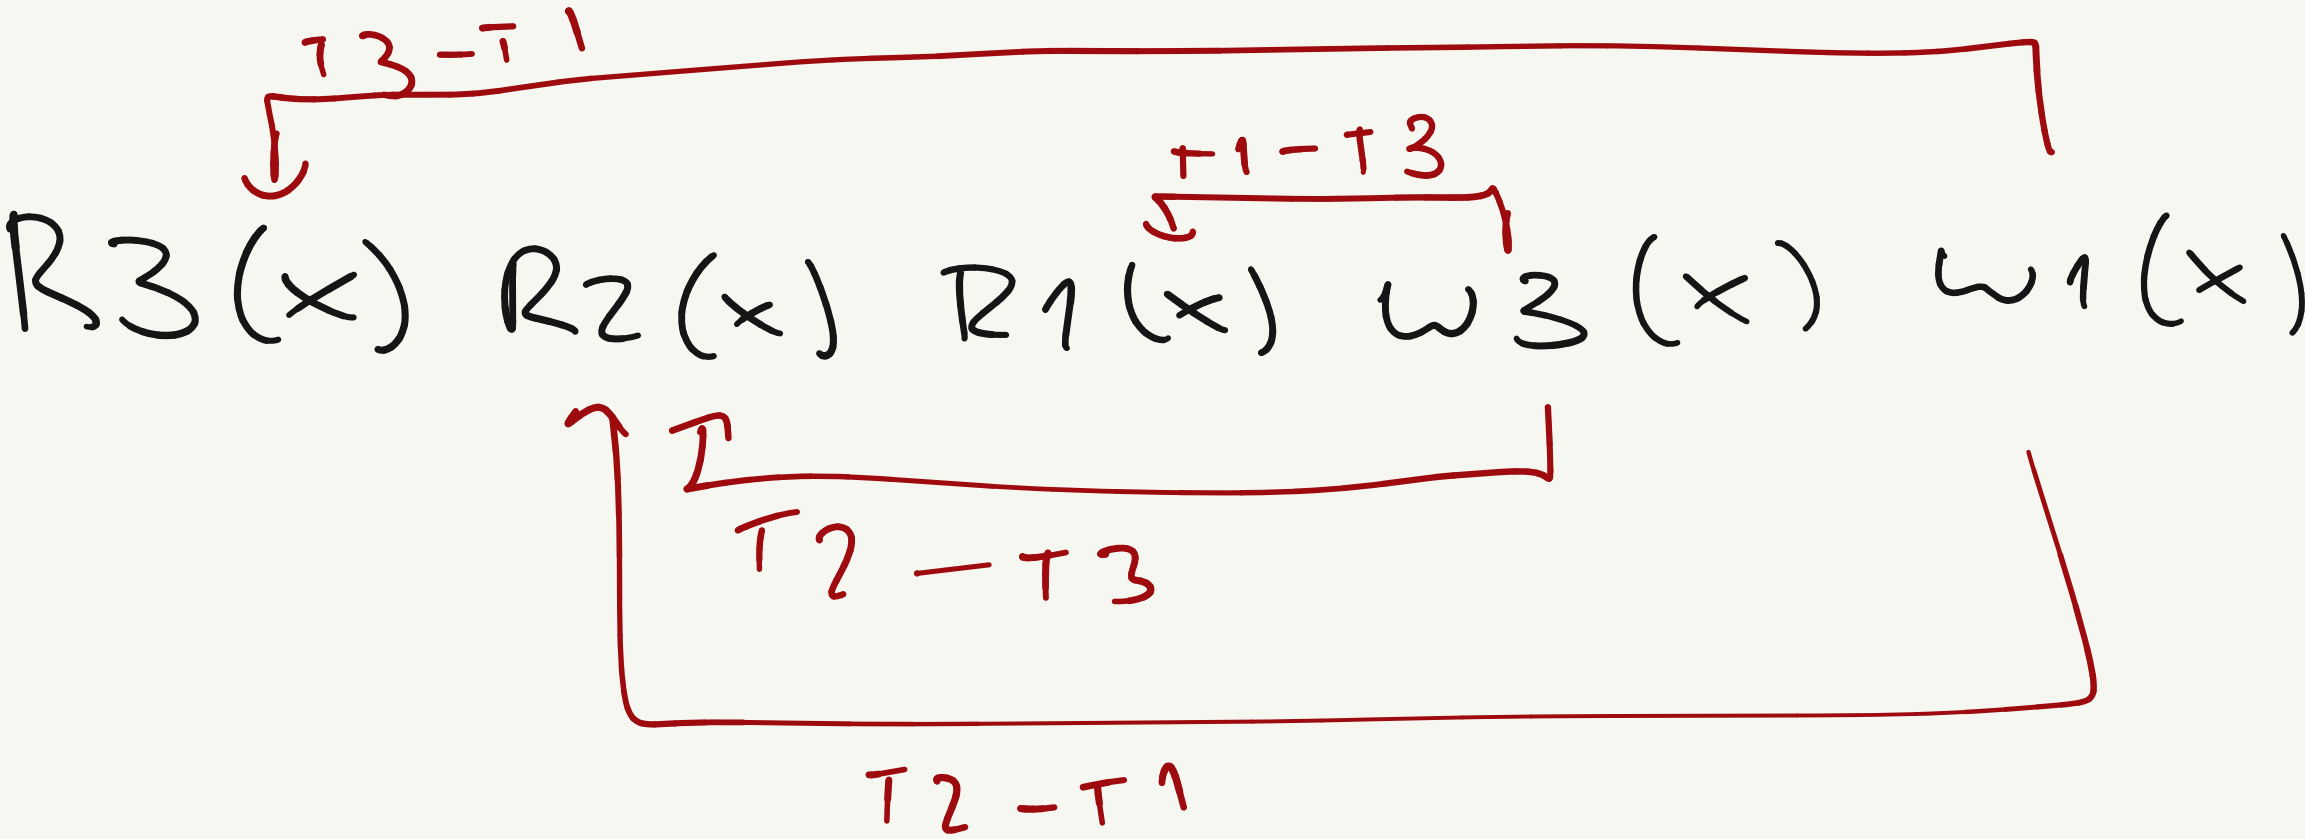 T3-T1
T1-T3
R3(x) R2(x) R1(x) W3(x) W1(x)
T2-T3
T2-T1